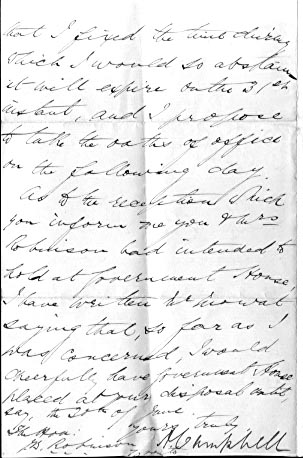 that I fixed the time during
which I would so abstain
it will expire on the 31st
instant, and I propose
to take the oaths of office
on the following day.
As to the reception which
you inform me you & Mrs
Robinson had intended to
hold at Government House,
I have written Mr Mowat
saying that, so far as I
was concerned, I would
cheerfully have Government House
placed at your disposal until,
say, the 20th of June.
yours truly
The Hon.
J.B. Robinson
A Campbell